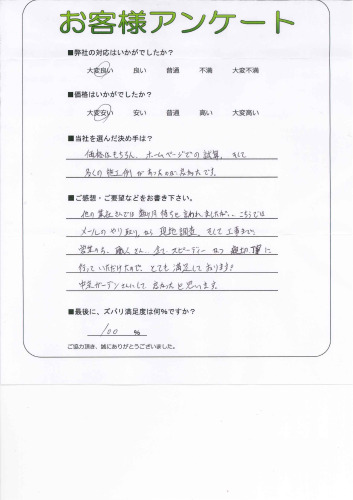 お客様アンケート
■弊社の対応はいかがでしたか？
大変良い 良い 普通 不満 大変不満
■価格はいかがでしたか？
大変安い 安い 普通 高い 大変高い
■当社を選んだ決め手は？
価格はもちろん、ホームページでの試算、そして
多くの施工例があったのが良かったです。
■ご感想・ご要望などをお書き下さい。
他の業社さんでは数ヶ月待ちと言われましたが、こちらでは
メールのやり取りから現地調査、そして工事まで、
営業の方、職人さん、全てスピーディーかつ親切、丁寧に
行っていただけたので、とても満足しております！
中央ガーデンさんにして良かったと思います。
■最後に、ズバリ満足度は何％ですか？
100 ％
ご協力頂き、誠にありがとうございました。